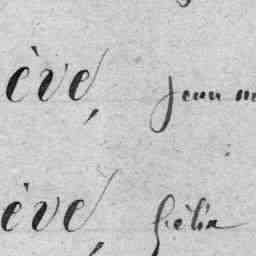 ève, Jean m
ève, Félix